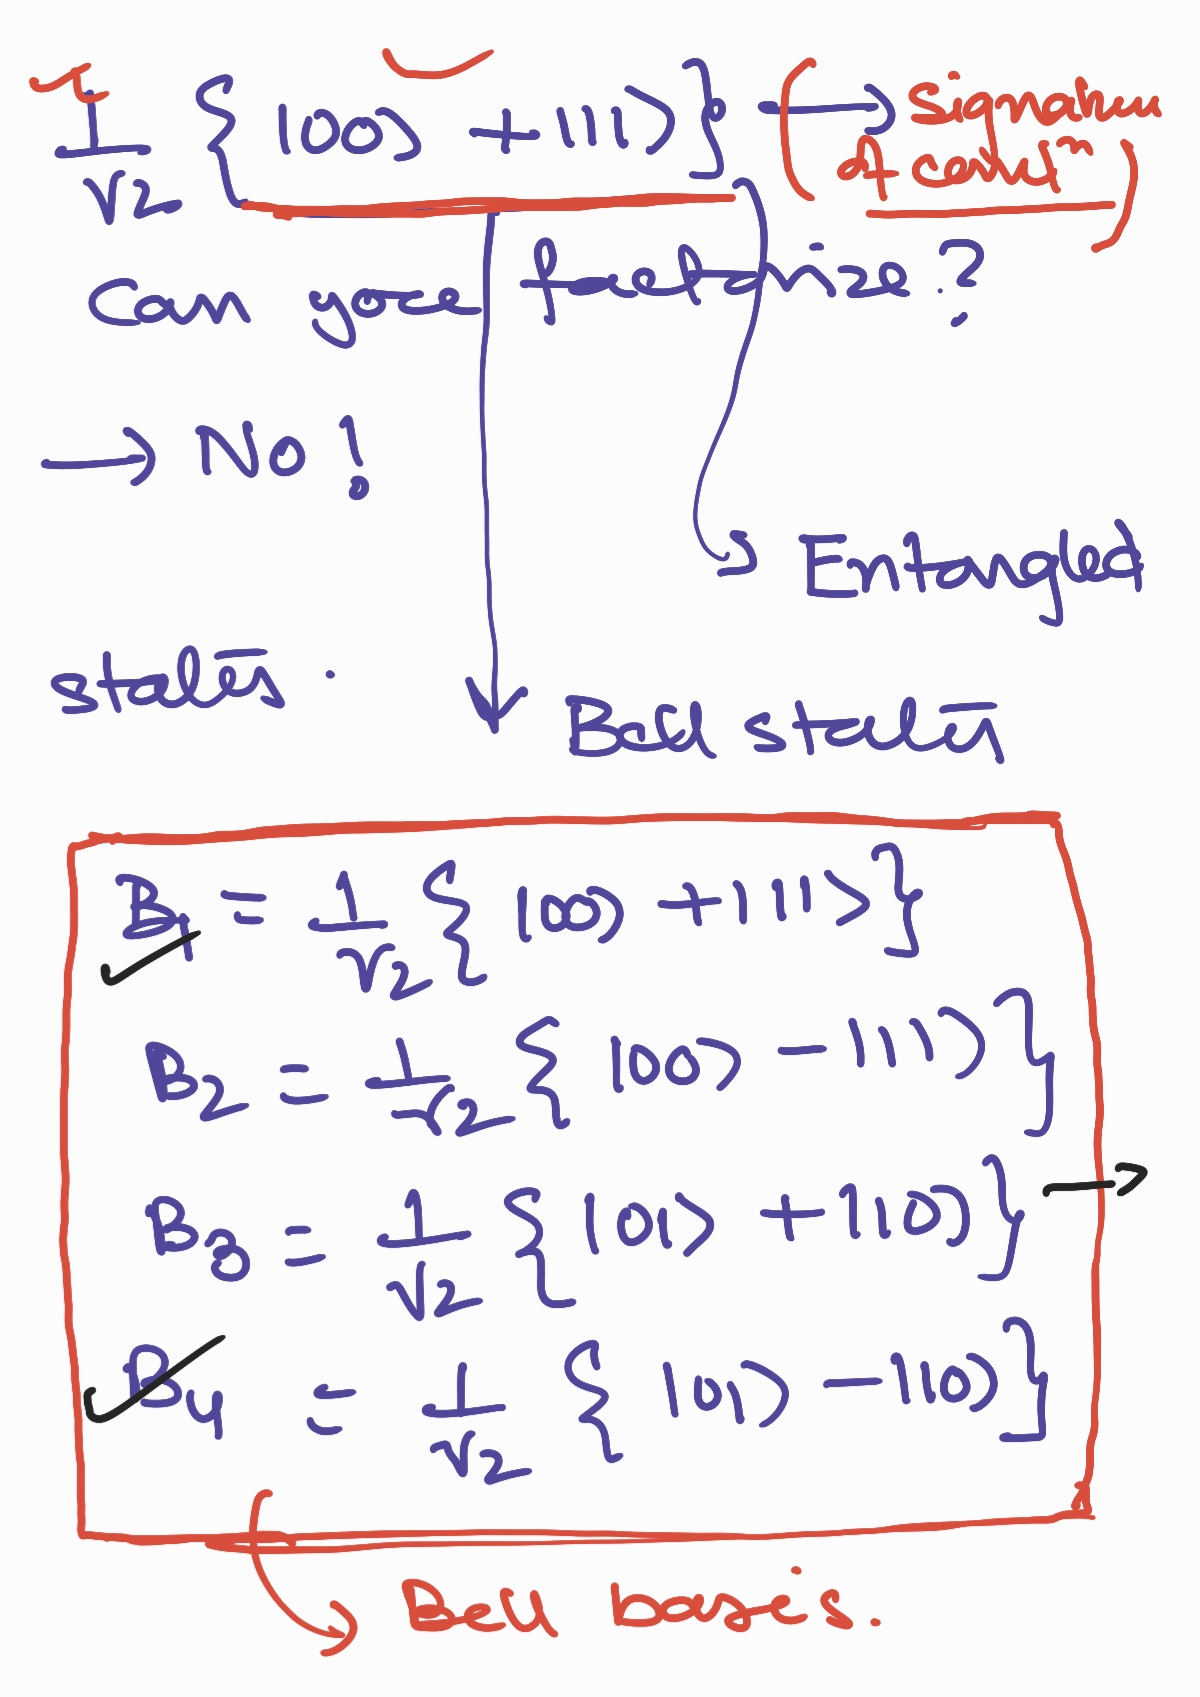 1/√2 { |00⟩ + |11⟩ } → ( Signature
of centrm )
Can you factorize ?
→ No !
→ Entangled
states .
Bell states
B1 = 1/√2 { |00⟩ + |11⟩ }
B2 = 1/√2 { |00⟩ - |11⟩ }
B3 = 1/√2 { |01⟩ + |10⟩ } →
B4 = 1/√2 { |01⟩ - |10⟩ }
→ Bell basis.